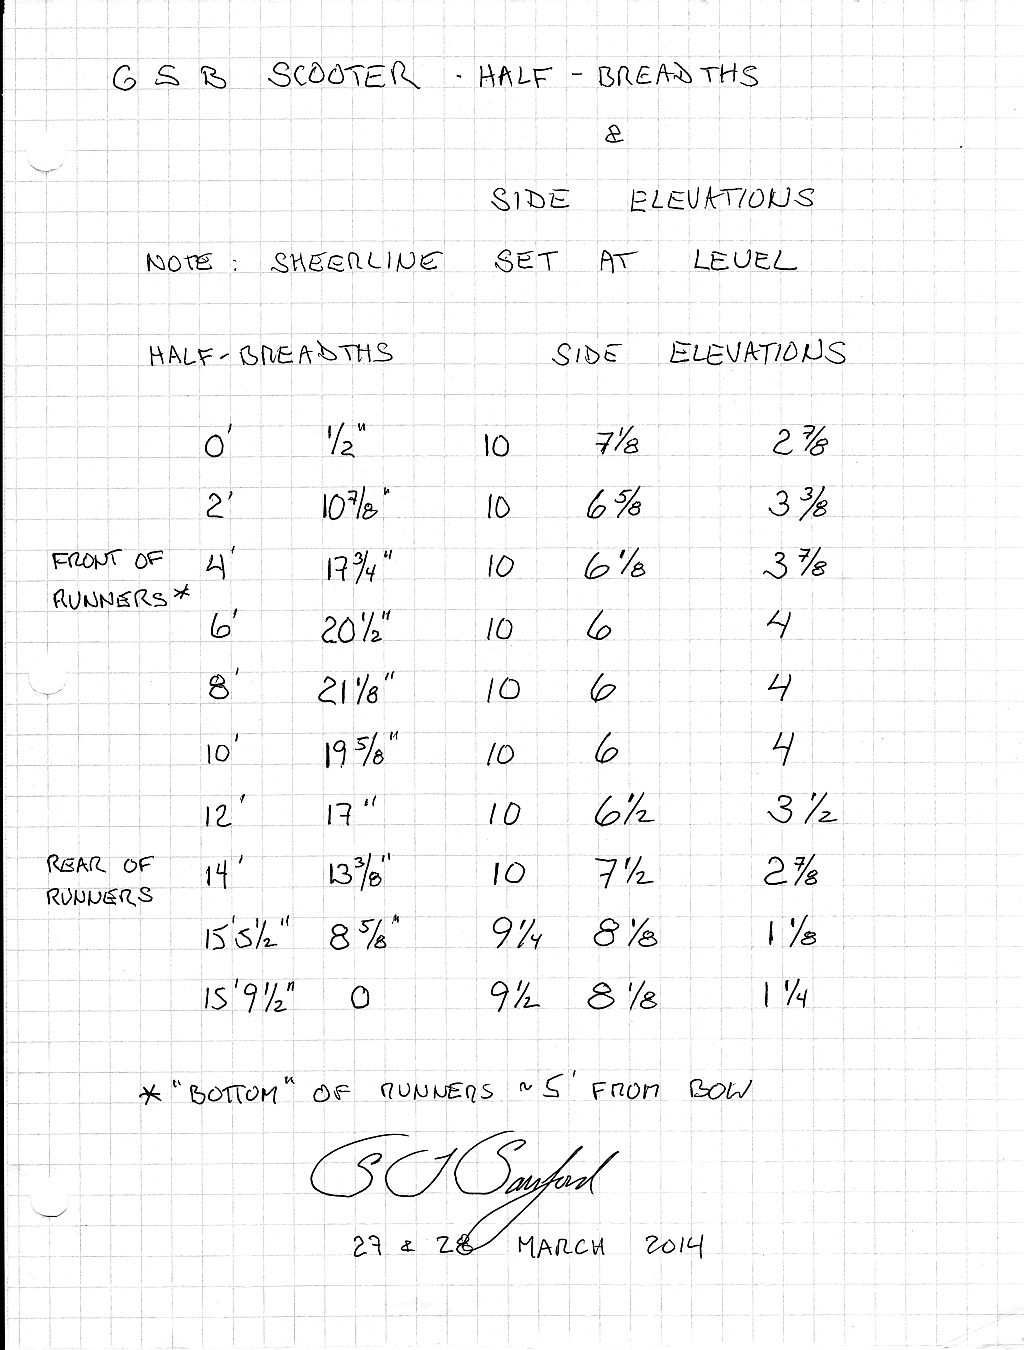 GSB SCOOTER - HALF-BREADTHS
&
SIDE ELEVATIONS
NOTE: SHEERLINE SET AT LEVEL
HALF-BREADTHS SIDE ELEVATIONS
0' 1/2" 10 7 1/8 2 7/8
2' 10 7/8" 10 6 5/8 3 3/8
FRONT OF RUNNERS* 4' 17 3/4" 10 6 1/8 3 7/8
6' 20 1/2" 10 6 4
8' 21 1/8" 10 6 4
10' 19 5/8" 10 6 4
12' 17" 10 6 1/2 3 1/2
REAR OF RUNNERS 14' 13 3/8" 10 7 1/2 2 7/8
15' 5 1/2" 8 5/8" 9 1/4 8 1/8 1 1/8
15' 9 1/2" 0 9 1/2 8 1/8 1 1/4
* "BOTTOM" OF RUNNERS ~ 5' FROM BOW
S J Sanford
27 & 28 MARCH 2014